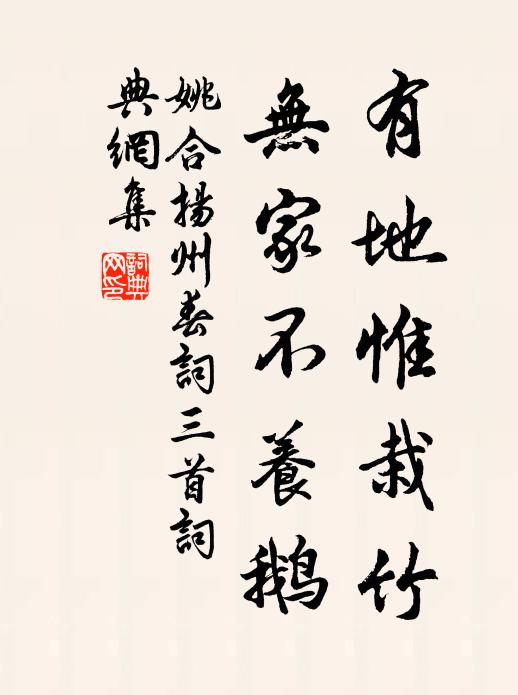 有地惟栽竹
無家不養鵝
姚合揚州春詞三首詞
典網集
詞典
网印